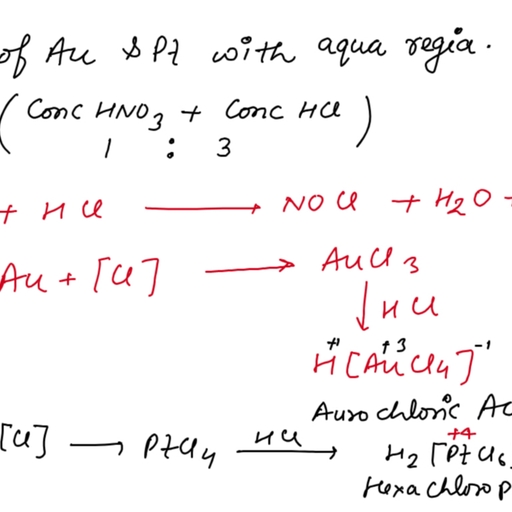 of Au & Pt with aqua regia.
(Conc HNO3 + Conc HCl)
1 : 3
+ HCl ⟶ NOCl + H2O +
Au + [Cl] ⟶ AuCl3
↓ HCl
H⁺[Au⁺³Cl4]⁻¹
Aurochloric Ac
[Cl] ⟶ PtCl4 —HCl⟶ H2[Pt⁺⁴Cl6
Hexachlorop